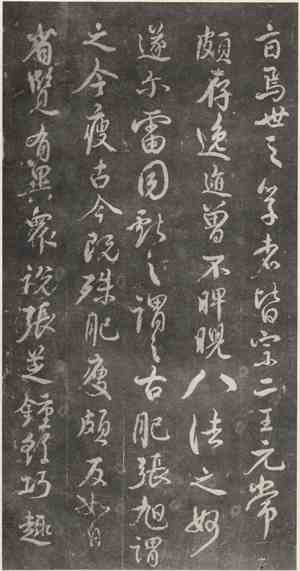 言焉世之学者皆宗二王元常
頗存逸迹曾不睥睨八法之妙
遂尓雷同献之謂之古肥張旭謂
之今瘦古今既殊肥瘦頗反如自
省覽有異衆說張芝鍾繇巧趣